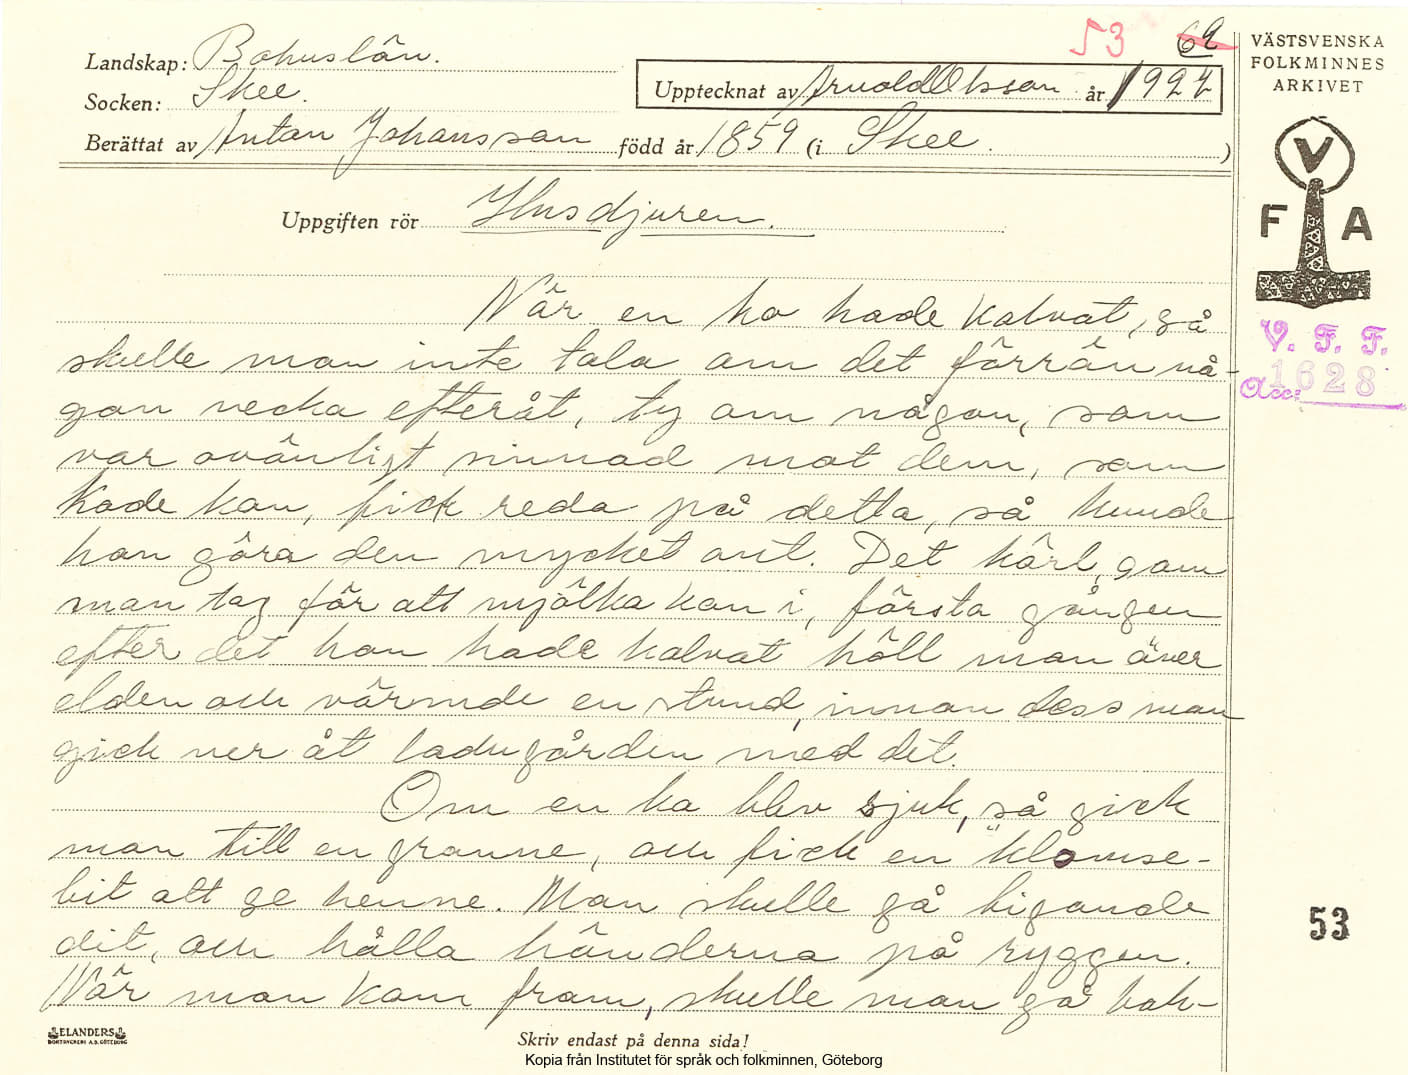 53 62
VÄSTSVENSKA
FOLKMINNES
ARKIVET
Landskap: Bohuslän.
Socken: Skee.
Upptecknat av Arnold Olsson år 1927
Berättat av Anton Johansson född år 1859 (i Skee.)
V
F A
Uppgiften rör Husdjuren.
V. F. F.
Acc: 1628
När en ko hade kalvat, så
skulle man inte tala om det förrän nå-
gon vecka efteråt, ty om någon, som
var ovänligt sinnad mot dem, som
hade kon, fick reda på detta, så kunde
han göra den mycket ont. Det kärl, som
man tog för att mjölka kon i, första gången
efter det hon hade kalvat höll man över
elden och värmde en stund, innan dess man
gick ner åt ladugården med det.
Om en ko blev sjuk, så gick
man till en granne, och fick en "klomse-
bit att ge henne. Man skulle gå tigande
dit, och hålla händerna på ryggen.
När man kom fram, skulle man gå bak-
53
ELANDERS
BOKTRYCKERI A.B. GÖTEBORG
Skriv endast på denna sida!
Kopia från Institutet för språk och folkminnen, Göteborg